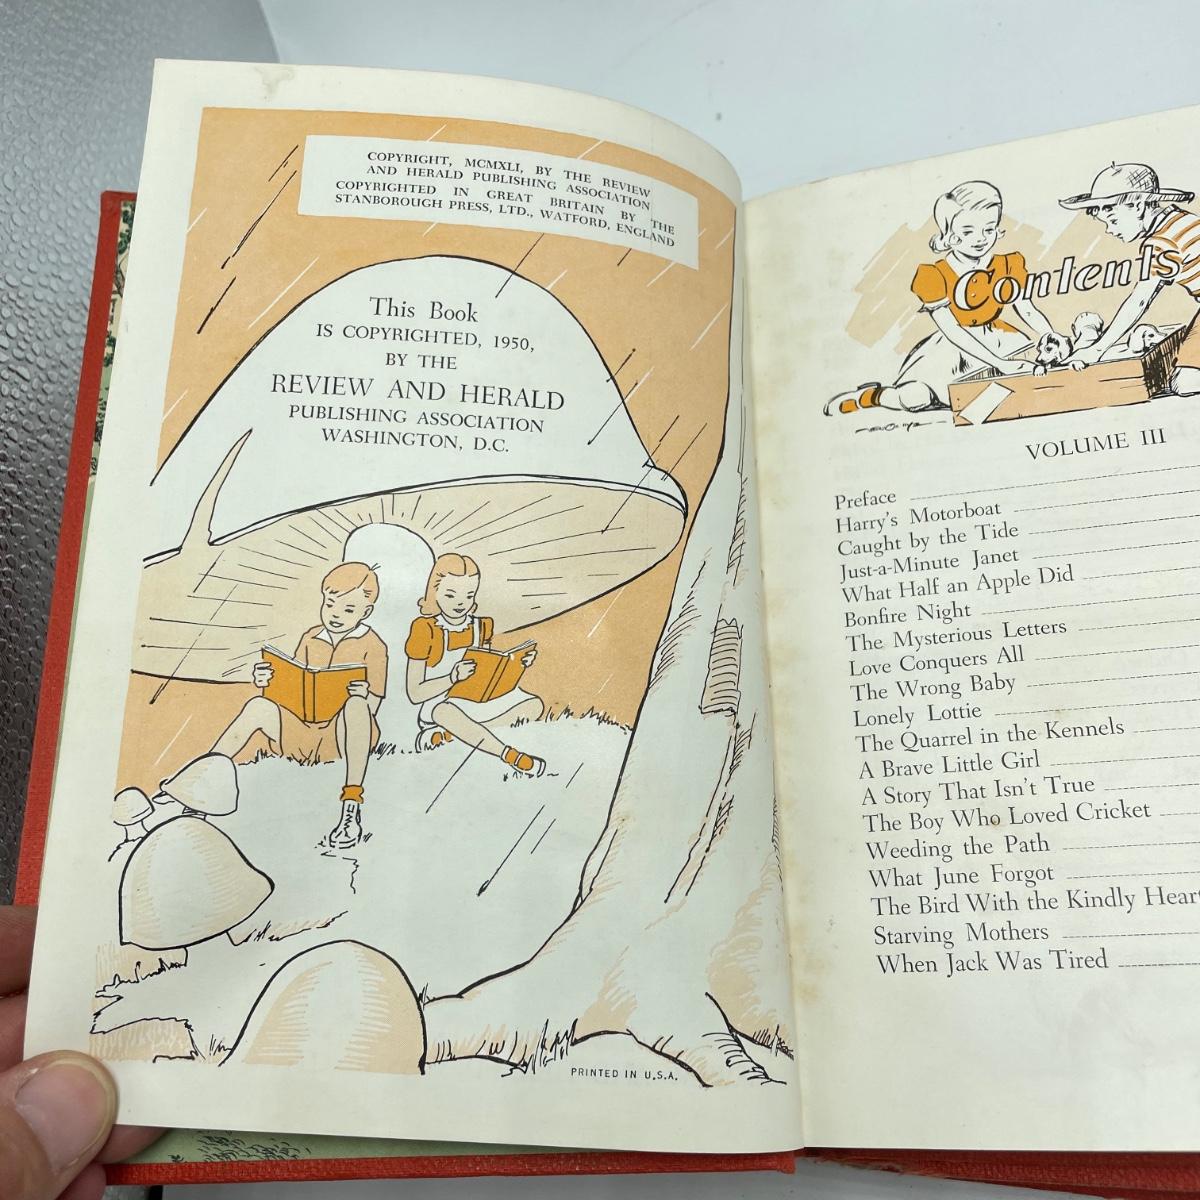 COPYRIGHT, MCMXLI, BY THE REVIEW
AND HERALD PUBLISHING ASSOCIATION
COPYRIGHTED IN GREAT BRITAIN BY THE
STANBOROUGH PRESS, LTD., WATFORD, ENGLAND
This Book
IS COPYRIGHTED, 1950,
BY THE
REVIEW AND HERALD
PUBLISHING ASSOCIATION
WASHINGTON, D.C.
PRINTED IN U.S.A.
Contents
VOLUME III
Preface
Harry's Motorboat
Caught by the Tide
Just-a-Minute Janet
What Half an Apple Did
Bonfire Night
The Mysterious Letters
Love Conquers All
The Wrong Baby
Lonely Lottie
The Quarrel in the Kennels
A Brave Little Girl
A Story That Isn't True
The Boy Who Loved Cricket
Weeding the Path
What June Forgot
The Bird With the Kindly Heart
Starving Mothers
When Jack Was Tired